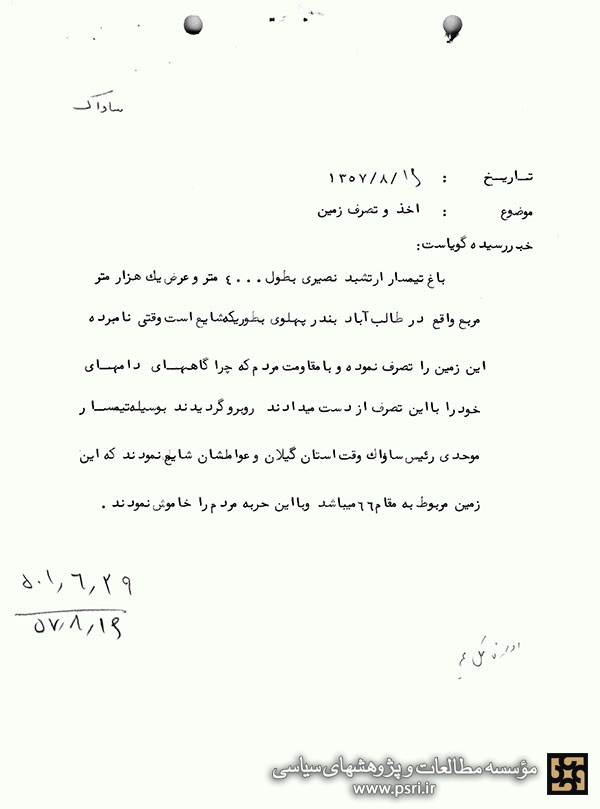 ساواک
تاریخ : ۱۳۵۷/۸/۱۹
موضوع : اخذ و تصرف زمین
خبر رسیده گویاست:
باغ تیمسار ارتشبد نصیری بطول ۴۰۰۰ متر و عرض یک هزار متر
مربع واقع در طالب آباد بندر پهلوی بطوریکه شایع است وقتی نامبرده
این زمین را تصرف نموده و با مقاومت مردم که چراگاههای دامهای
خود را با این تصرف از دست میدادند روبرو گردیدند بوسیله تیمسار
موحدی رئیس ساواک وقت استان گیلان و عواملشان شایع نمودند که این
زمین مربوط به مقام ۶۶ میباشد و با این حربه مردم را خاموش نمودند .
۵۰۱٫۶٫۲۹
۵۷٫۸٫۱۹
مؤسسه مطالعات و پژوهشهای سیاسی
www.psri.ir